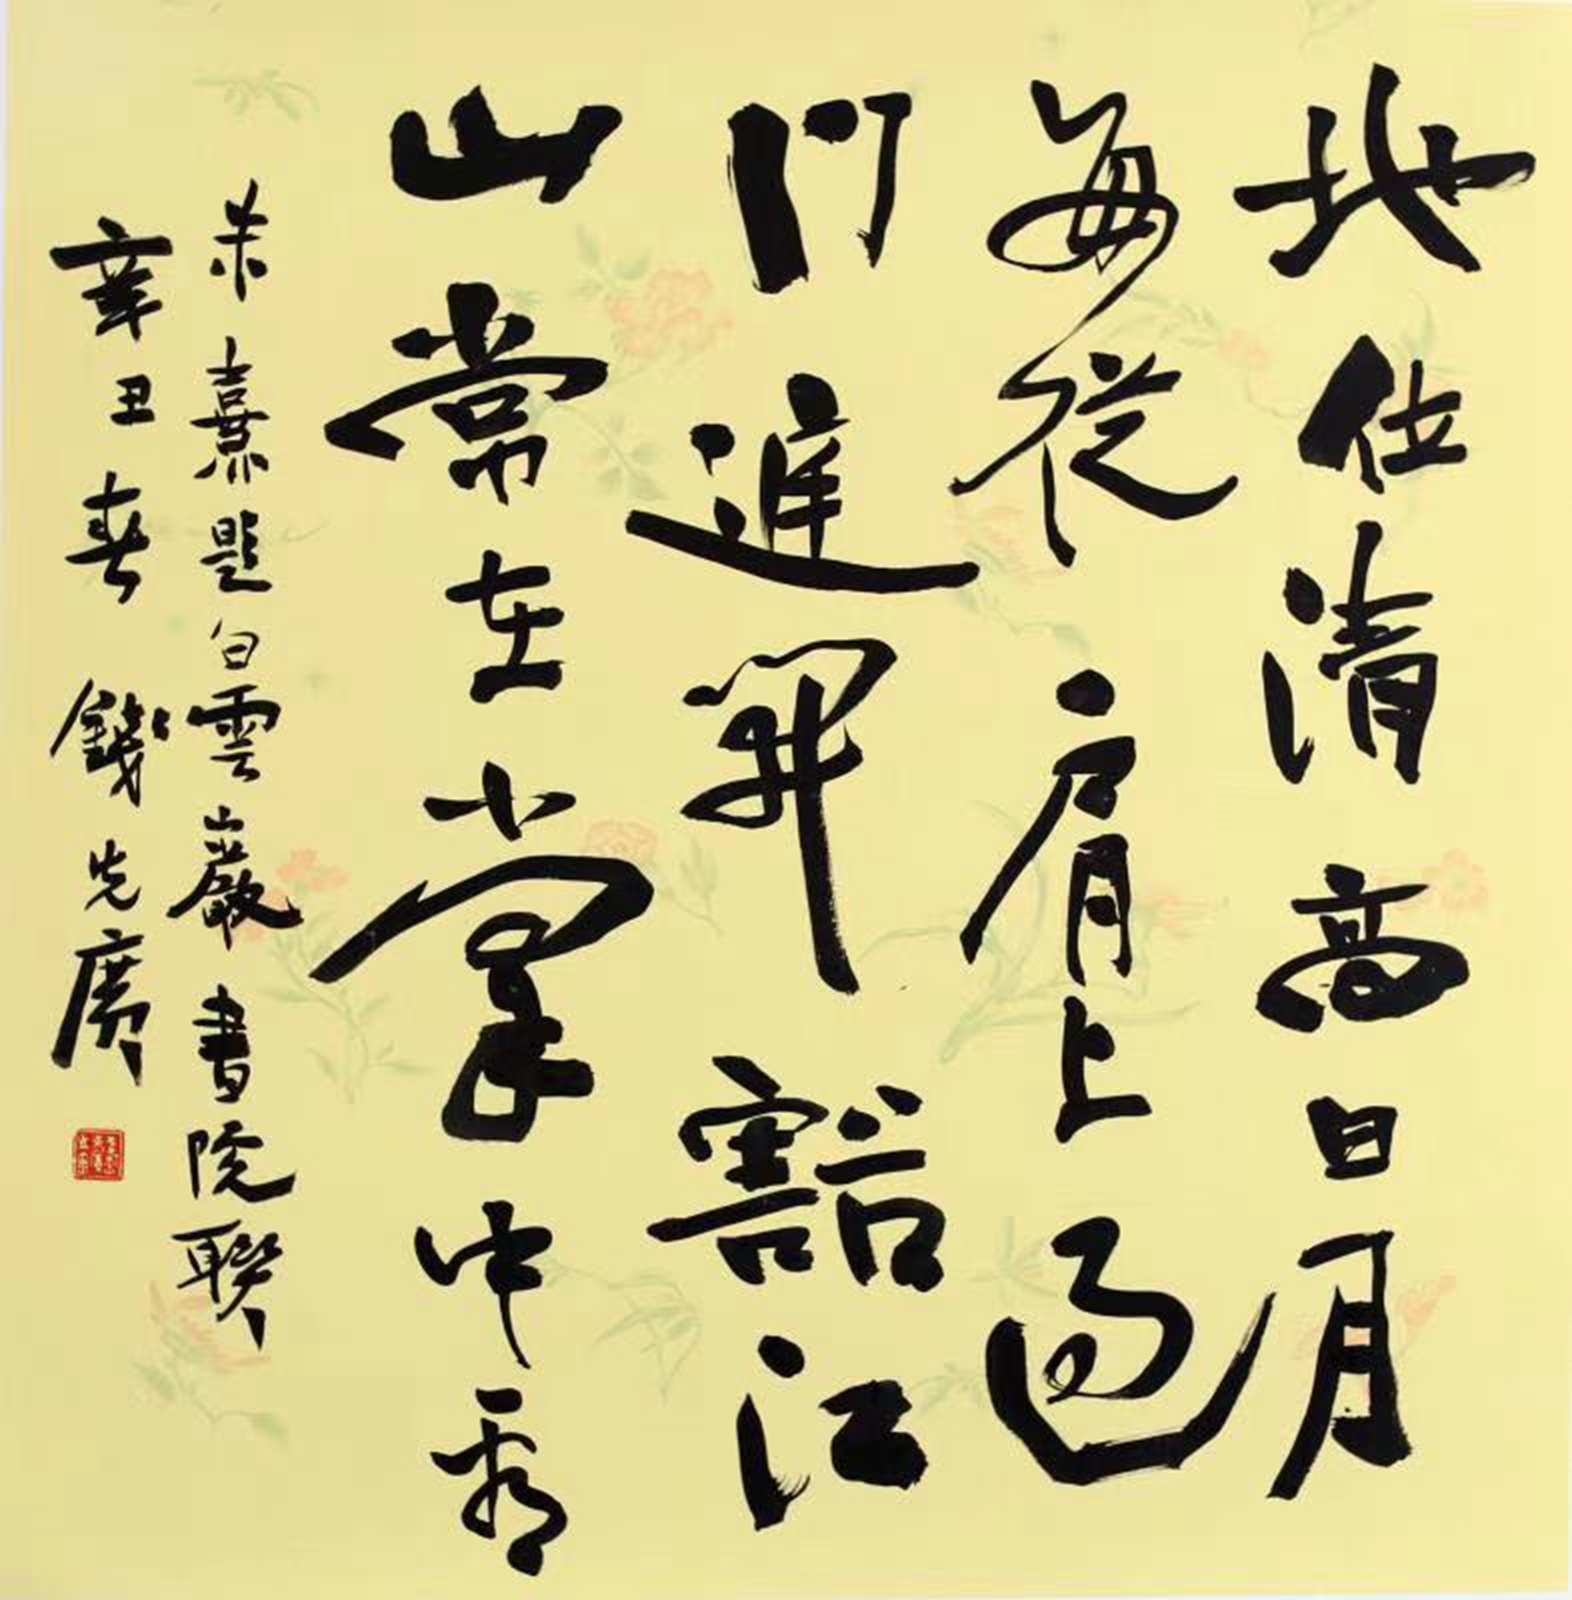 地位清高日月
每從肩上過
門進開豁江
山常在掌中看
朱熹題白雲巖書院聯
辛丑春 錢先廣